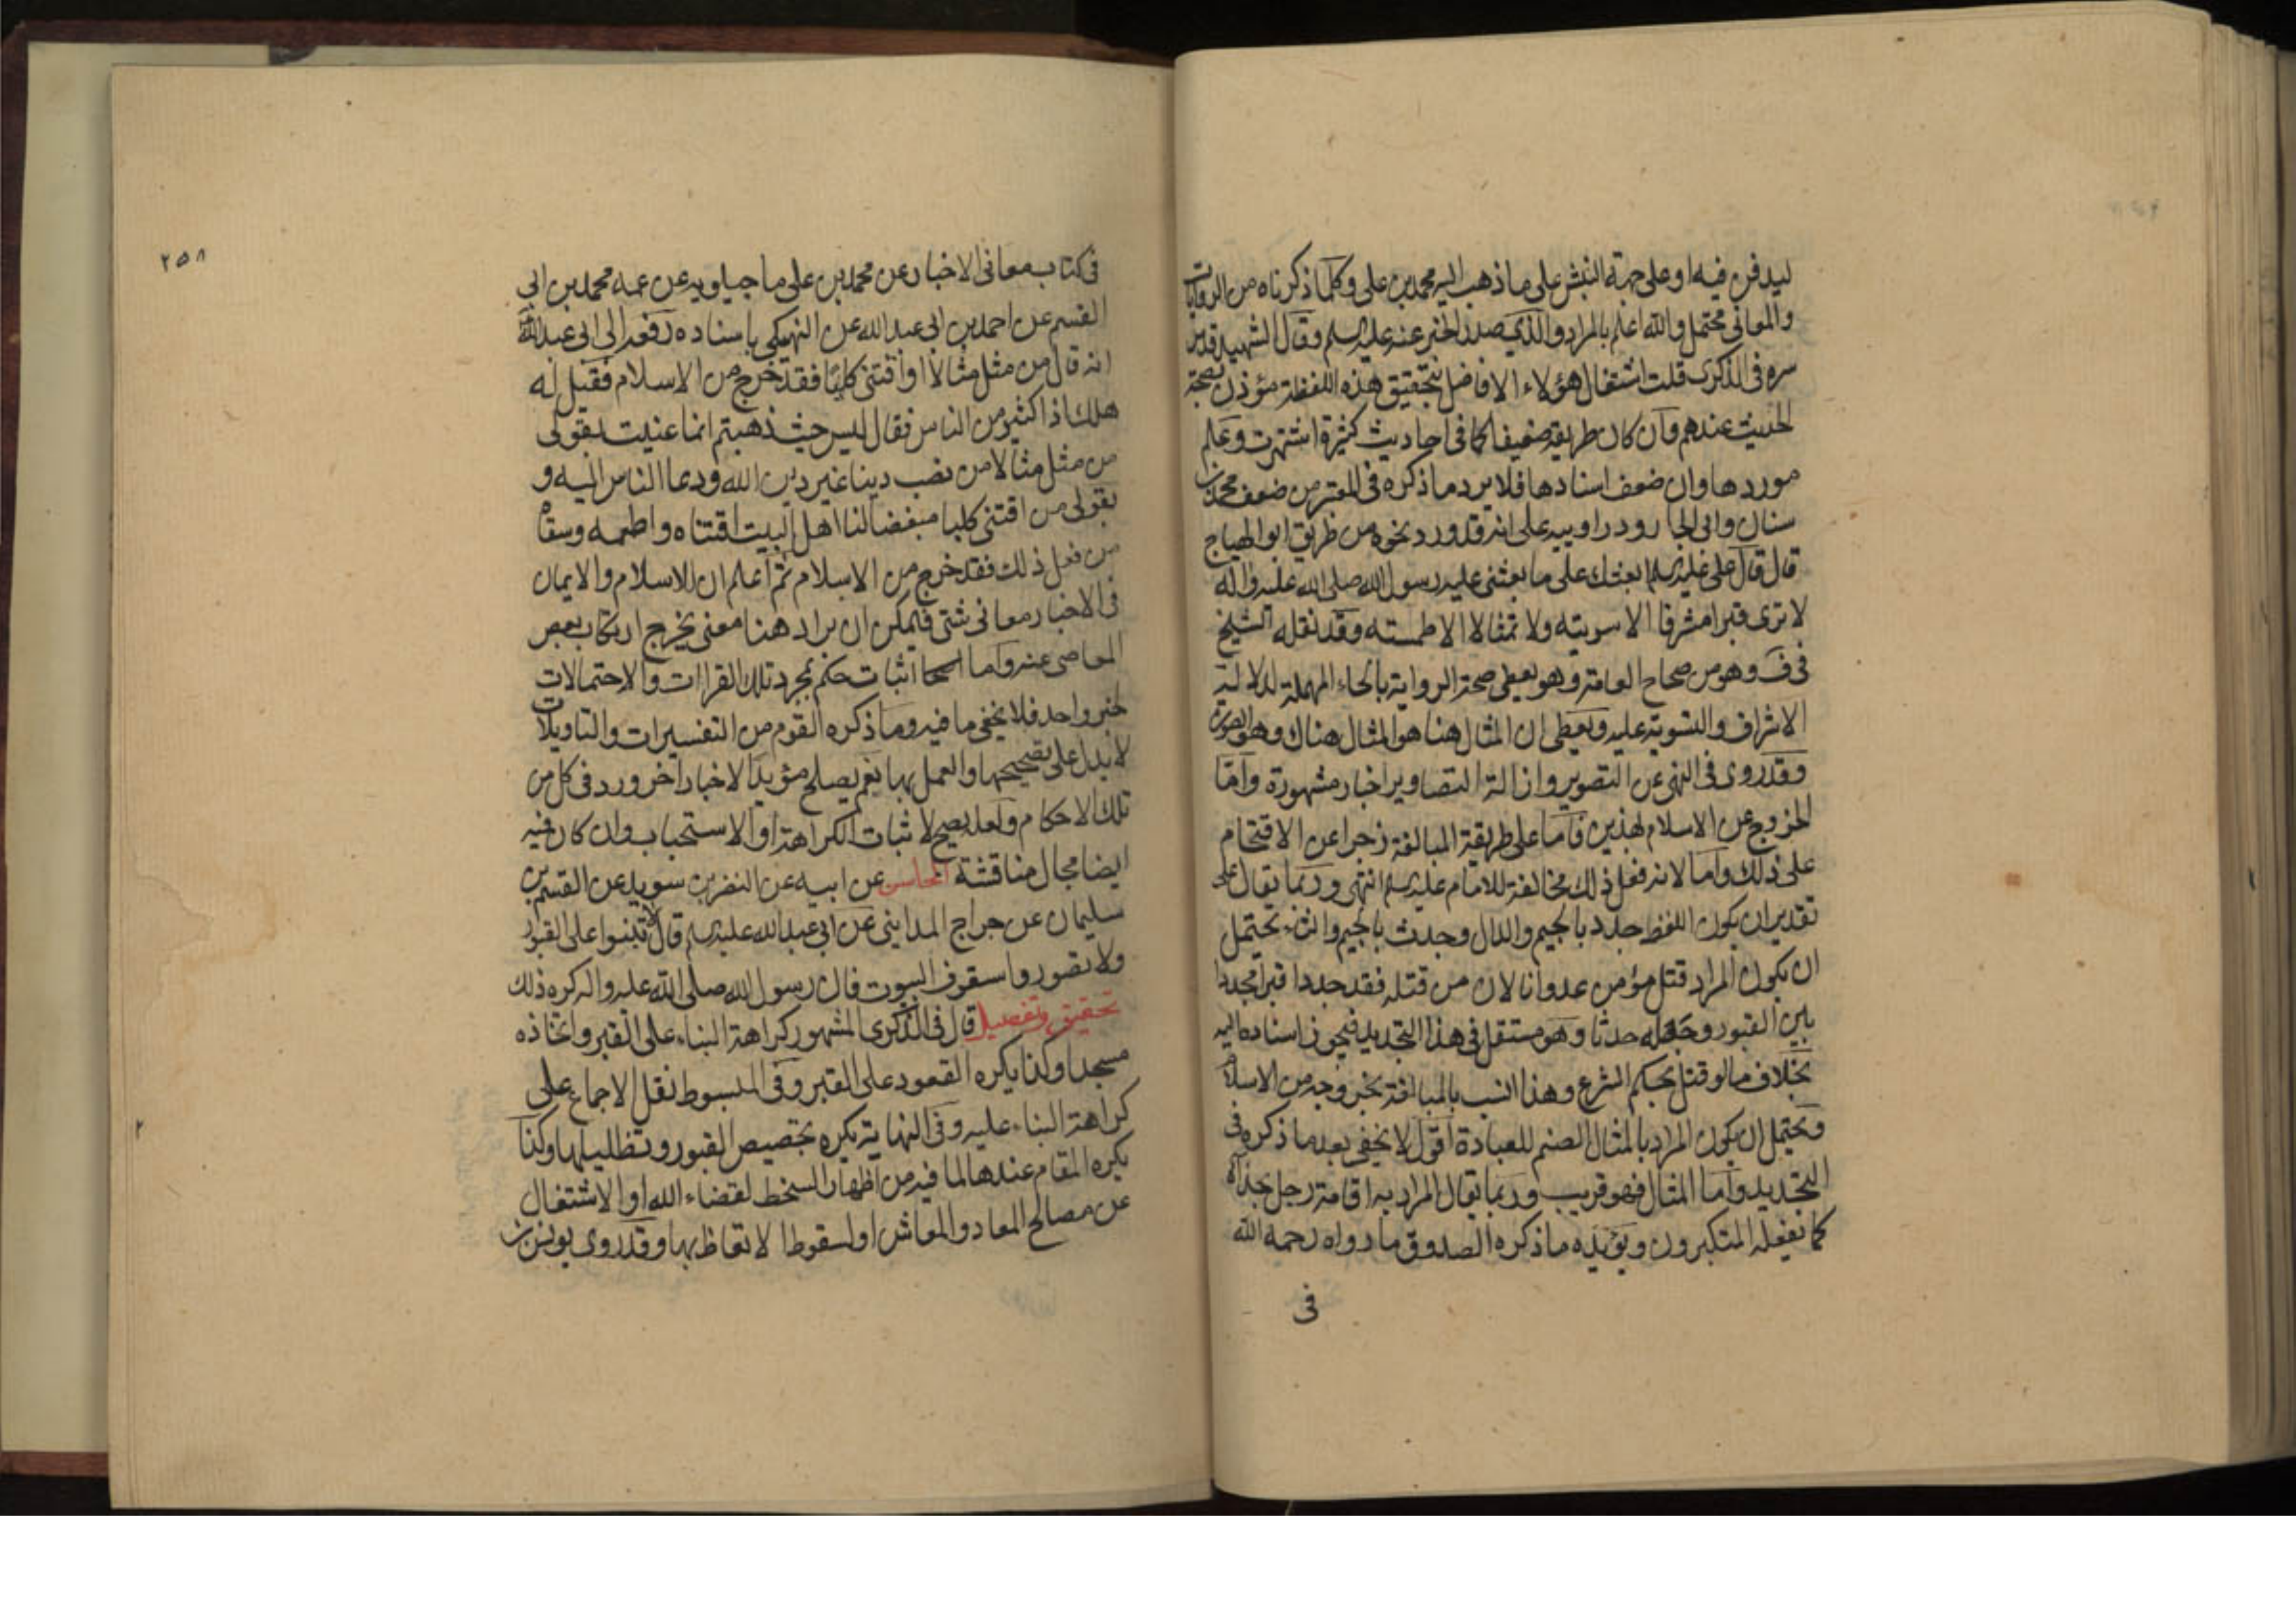 ليدفن فيه او على جهة النبش على ما ذهب اليه محمد بن علي وكلما ذكرناه من الروايات
والمعاني محتمل والله اعلم بالمراد والذي صدر الخبر عنه عليه السلم وقال الشهيد قدس
سره في الذكرى قلت اشتغال هؤلاء الافاضل بتحقيق هذه اللفظة مؤذن بصحة
الحديث عندهم وان كان طريقه ضعيفا كما في احاديث كثيرة اشتهرت وعلم
موردها وان ضعف اسنادها فلا يرد ما ذكره في المعتبر من ضعف محمد بن
سنان وابي الجارود راوييه على انه قد ورد نحوه من طريق ابو الهياج
قال قال علي عليه السلم ابعثك على ما بعثني عليه رسول الله صلى الله عليه واله
لا ترى قبرا مشرفا الا سويته ولا تمثالا الا طمسته وقد نقله الشيخ
في ف وهو من صحاح العامة وهو يعطي صحة الرواية بالحاء المهملة لدلالة
الاشراف والتسوية عليه ويعطي ان المثال هنا هو المثال هناك وهو الصورة
وقد روى في النهى عن التصوير وازالة التصاوير اخبار مشهورة واما
الخروج عن الاسلام لهذين فاما على طريقة المبالغة زجرا عن الاقتحام
على ذلك واما لانه فعل ذلك مخالفة للامام عليه السلم انتهى وربما يقال على
تقدير ان يكون اللفظ جدد بالجيم والدال وجدث بالجيم والثاء يحتمل
ان يكون المراد قتل مؤمن عدوانا لان من قتله فقد جدد قبرا مجددا
بين القبور وجعله جدثا وهو مستقل في هذا التجديد فيجوز اسناده اليه
بخلاف ما لو قتل بحكم الشرع وهذا انسب بالمبالغة بخروجه من الاسلام
ويحتمل ان يكون المراد بالمثال الصنم للعبادة اقول لا يخفى بعد ما ذكره في
التجديد واما المثال فهو قريب وربما يقال المراد به اقامة رجل بحذاه
كما يفعله المتكبرون ويؤيده ما ذكره الصدوق ما رواه رحمه الله
في
٢٥٨
في كتاب معاني الاخبار عن محمد بن علي ماجيلويه عن عمه محمد بن ابي
القسم عن احمد بن ابي عبد الله عن النهيكي باسناده رفعه الى ابي عبد الله
انه قال من مثل مثالا او اقتنى كلبا فقد خرج من الاسلام فقيل له
هلك اذا كثير من الناس فقال ليس حيث ذهبتم انما عنيت بقولي
من مثل مثالا من نصب دينا غير دين الله ودعا الناس اليه و
بقولي من اقتنى كلبا مبغضا لنا اهل البيت اقتناه واطعمه وسقاه
من فعل ذلك فقد خرج من الاسلام ثم اعلم ان للاسلام والايمان
في الاخبار معاني شتى فيمكن ان يراد هنا معنى يخرج ارتكاب بعض
المعاصي عنه واما اثبات حكم بمجرد تلك القراات والاحتمالات
لخبر واحد فلا يخفى ما فيه وما ذكره القوم من التفسيرات والتاويلات
لا يدل على تصحيحها والعمل بها نعم يصلح مؤيدا لاخبار اخر ورد في كل من
تلك الاحكام ولعله يصح لاثبات الكراهة او الاستحباب وان كان فيه
ايضا مجال مناقشة المحاسن عن ابيه عن النضر بن سويد عن القسم بن
سليمان عن جراح المدايني عن ابي عبد الله عليه السلم قال لا تبنوا على القبور
ولا تصوروا سقوف البيوت فان رسول الله صلى الله عليه واله كره ذلك
تحقيق وتفصيل قال في الذكرى المشهور كراهة البناء على القبر واتخاذه
مسجدا وكذا يكره القعود على القبر وفي المبسوط نقل الاجماع على
كراهة البناء عليه وفي النهاية يكره تجصيص القبور وتظليلها وكذا
يكره المقام عندها لما فيه من اظهار السخط لقضاء الله او الاشتغال
عن مصالح المعاد والمعاش او لسقوط الاتعاظ بها وقد روى يونس بن